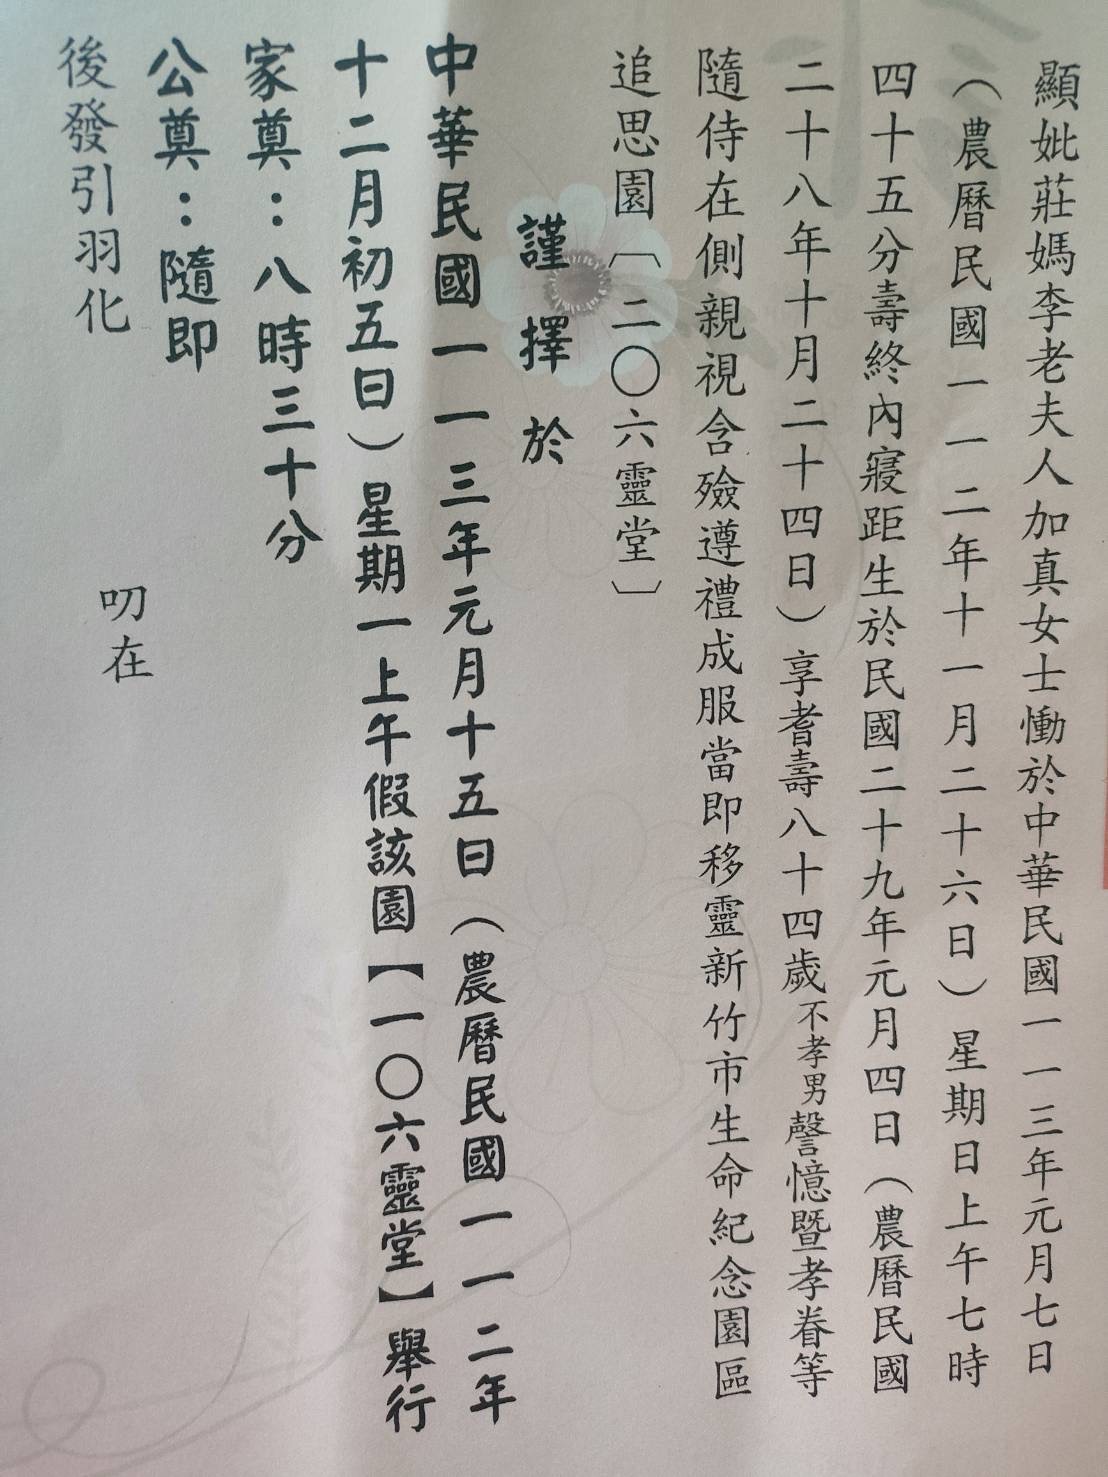 顯妣莊媽李老夫人加真女士慟於中華民國一一三年元月七日
（農曆民國一一二年十一月二十六日）星期日上午七時
四十五分壽終內寢距生於民國二十九年元月四日（農曆民國
二十八年十月二十四日）享耆壽八十四歲不孝男謦憶暨孝眷等
隨侍在側親視含殮遵禮成服當即移靈新竹市生命紀念園區
追思園〔二〇六靈堂〕
謹擇於
中華民國一一三年元月十五日（農曆民國一一二年
十二月初五日）星期一上午假該園【一〇六靈堂】舉行
家奠：八時三十分
公奠：隨即
後發引羽化
叨在